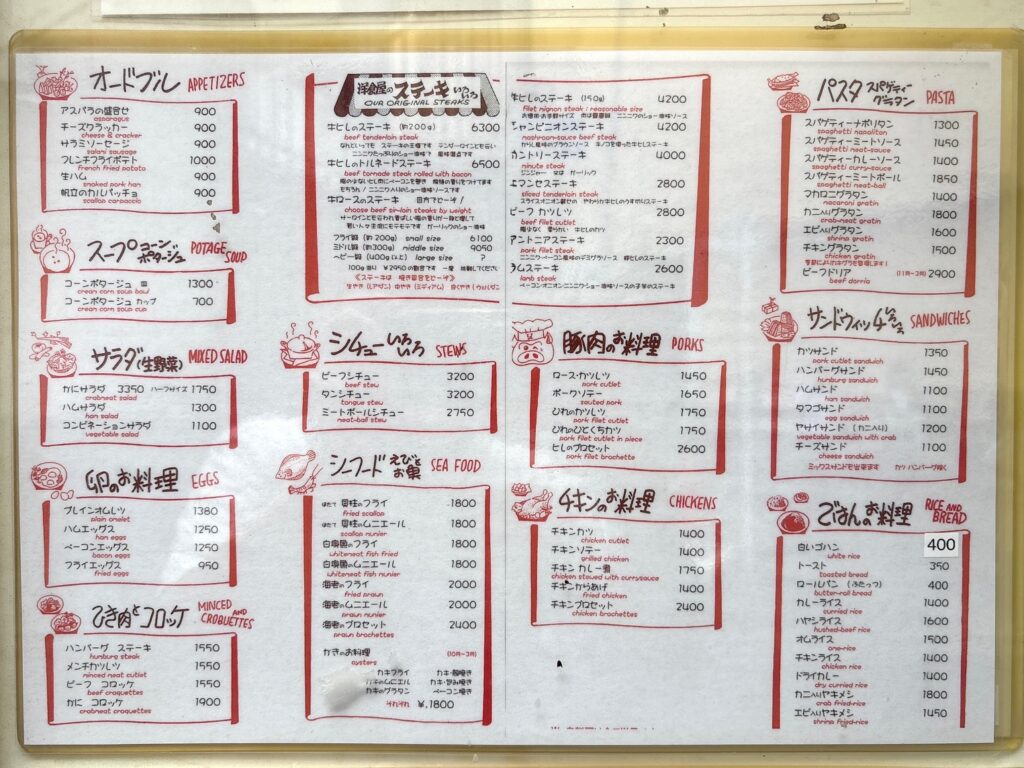 オードブル APPETIZERS
アスパラの盛合せ 900
asparagus
チーズクラッカー 900
cheese & cracker
サラミソーセージ 900
salami sausage
フレンチフライポテト 1000
french fried potato
生ハム 900
smoked pork han
帆立のカルパッチョ 900
scallop carpaccio
スープ コーン ポタージュ POTAGE SOUP
コーンポタージュ 皿 1300
cream corn soup bowl
コーンポタージュ カップ 700
cream corn soup cup
サラダ(生野菜) MIXED SALAD
かにサラダ 3350 ハーフサイズ 1750
crabneat salad
ハムサラダ 1300
han salad
コンビネーションサラダ 1100
vegetable salad
卵のお料理 EGGS
プレインオムレツ 1380
plain onelet
ハムエッグス 1250
han eggs
ベーコンエッグス 1250
bacon eggs
フライエッグス 950
fried eggs
ひき肉とコロッケ MINCED AND CROQUETTES
ハンバーグ ステーキ 1550
hunburg steak
メンチカツレツ 1550
ninced neat cutlet
ビーフ コロッケ 1550
beef croquettes
かに コロッケ 1900
crabneat croquettes
洋食屋のステーキいろいろ
OUR ORIGINAL STEAKS
牛ヒレのステーキ (約200g) 6300
beef tenderloin steak
なんといっても ステーキの王様です テンダーロインとも云い
牛ヒレのトルネードステーキ 6500
beef tornade steak rolled with bacon
牛ロースのステーキ 目方でどーぞ!
choose beef sir-loin steaks by weight
フライ級 (約200g) small size 6100
ミドル級 (約300g) niddle size 9050
ヘビー級 (400g以上) large size ?
100g 増り ¥2950の割合です 一度 挑戦してください
《ステーキは 焼き具合をどーぞ》
生やき (レアダン) 中やき (ミディアム) 良くやき (ウェルダン
牛ヒレのステーキ (150g) 4200
filet nignon steak : reasonable size
シャンピニオンステーキ 4200
nashroon-sauce beef steak
カントリーステーキ 4000
ninute steak
ジンジャー 又は ガーリック
エマンセステーキ 2800
sliced tenderloin steak
ビーフ カツレツ 2800
beef filet cutlet
アントニアステーキ 2300
pork filet steak
ラムステーキ 2600
lanb steak
シチューいろいろ STEWS
ビーフシチュー 3200
beef stew
タンシチュー 3200
tongue stew
ミートボールシチュー 2750
neat-ball stew
シーフード えびとお魚 SEA FOOD
ほたて 貝柱のフライ 1800
fried scallop
ほたて 貝柱のムニエール 1800
scallop nunier
白身魚のフライ 1800
whiteneat fish fried
白身魚のムニエール 1800
whiteneat fish nunier
海老のフライ 2000
fried praun
海老のムニエール 2000
praun nunier
海老のブロセット 2400
praun brochettes
かきのお料理 (10月〜3月)
oysters
カキフライ カキ・殻焼き
カキのムニエル カキ・包み焼き
カキのグラタン ベーコン焼き
それぞれ ¥.1800
豚肉のお料理 PORKS
ロース・カツレツ 1450
pork cutlet
ポークソテー 1650
sauted pork
ひれのカツレツ 1750
pork filet cutlet
ひれのひとくちカツ 1750
pork filet cutlet in piece
ヒレのブロセット 2600
pork filet brochette
チキンのお料理 CHICKENS
チキンカツ 1400
chicken cutlet
チキンソテー 1400
grilled chicken
チキン カレー煮 1750
chicken stewed with currysauce
チキンからあげ 1400
fried chicken
チキンブロセット 2400
chicken brochettes
パスタ スパゲティー グラタン PASTA
スパゲティーナポリタン 1300
spaghetti napolitan
スパゲティーミートソース 1450
spaghetti neat-sauce
スパゲティーカレーソース 1400
spaghetti curry-sauce
スパゲティーミートボール 1850
spaghetti neat-ball
マカロニグラタン 1400
nacaroni gratin
カニ入りグラタン 1800
crab-neat gratin
エビ入りグラタン 1600
shrinp gratin
チキングラタン 1500
chicken gratin
ビーフドリア (11月〜2月) 2900
beef dorria
サンドウィッチいろいろ SANDWICHES
カツサンド 1350
pork cutlet sandwich
ハンバーグサンド 1400
hunburg sandwich
ハムサンド 1100
han sandwich
タマゴサンド 1100
egg sandwich
ヤサイサンド (カニ入り) 1200
vegetable sandwich with crab
チーズサンド 1100
cheese sandwich
ミックスサンドも出来ます カツ ハンバーグ抜く
ごはんのお料理 RICE AND BREAD
白いゴハン 400
white rice
トースト 350
toasted bread
ロールパン (ふたっつ) 400
butter-roll bread
カレーライス 1400
curried rice
ハヤシライス 1600
hushed-beef rice
オムライス 1500
one-rice
チキンライス 1400
chicken rice
ドライカレー 1400
dry curried rice
カニ入りヤキメシ 1800
crab fried-rice
エビ入りヤキメシ 1450
shrinp fried-rice